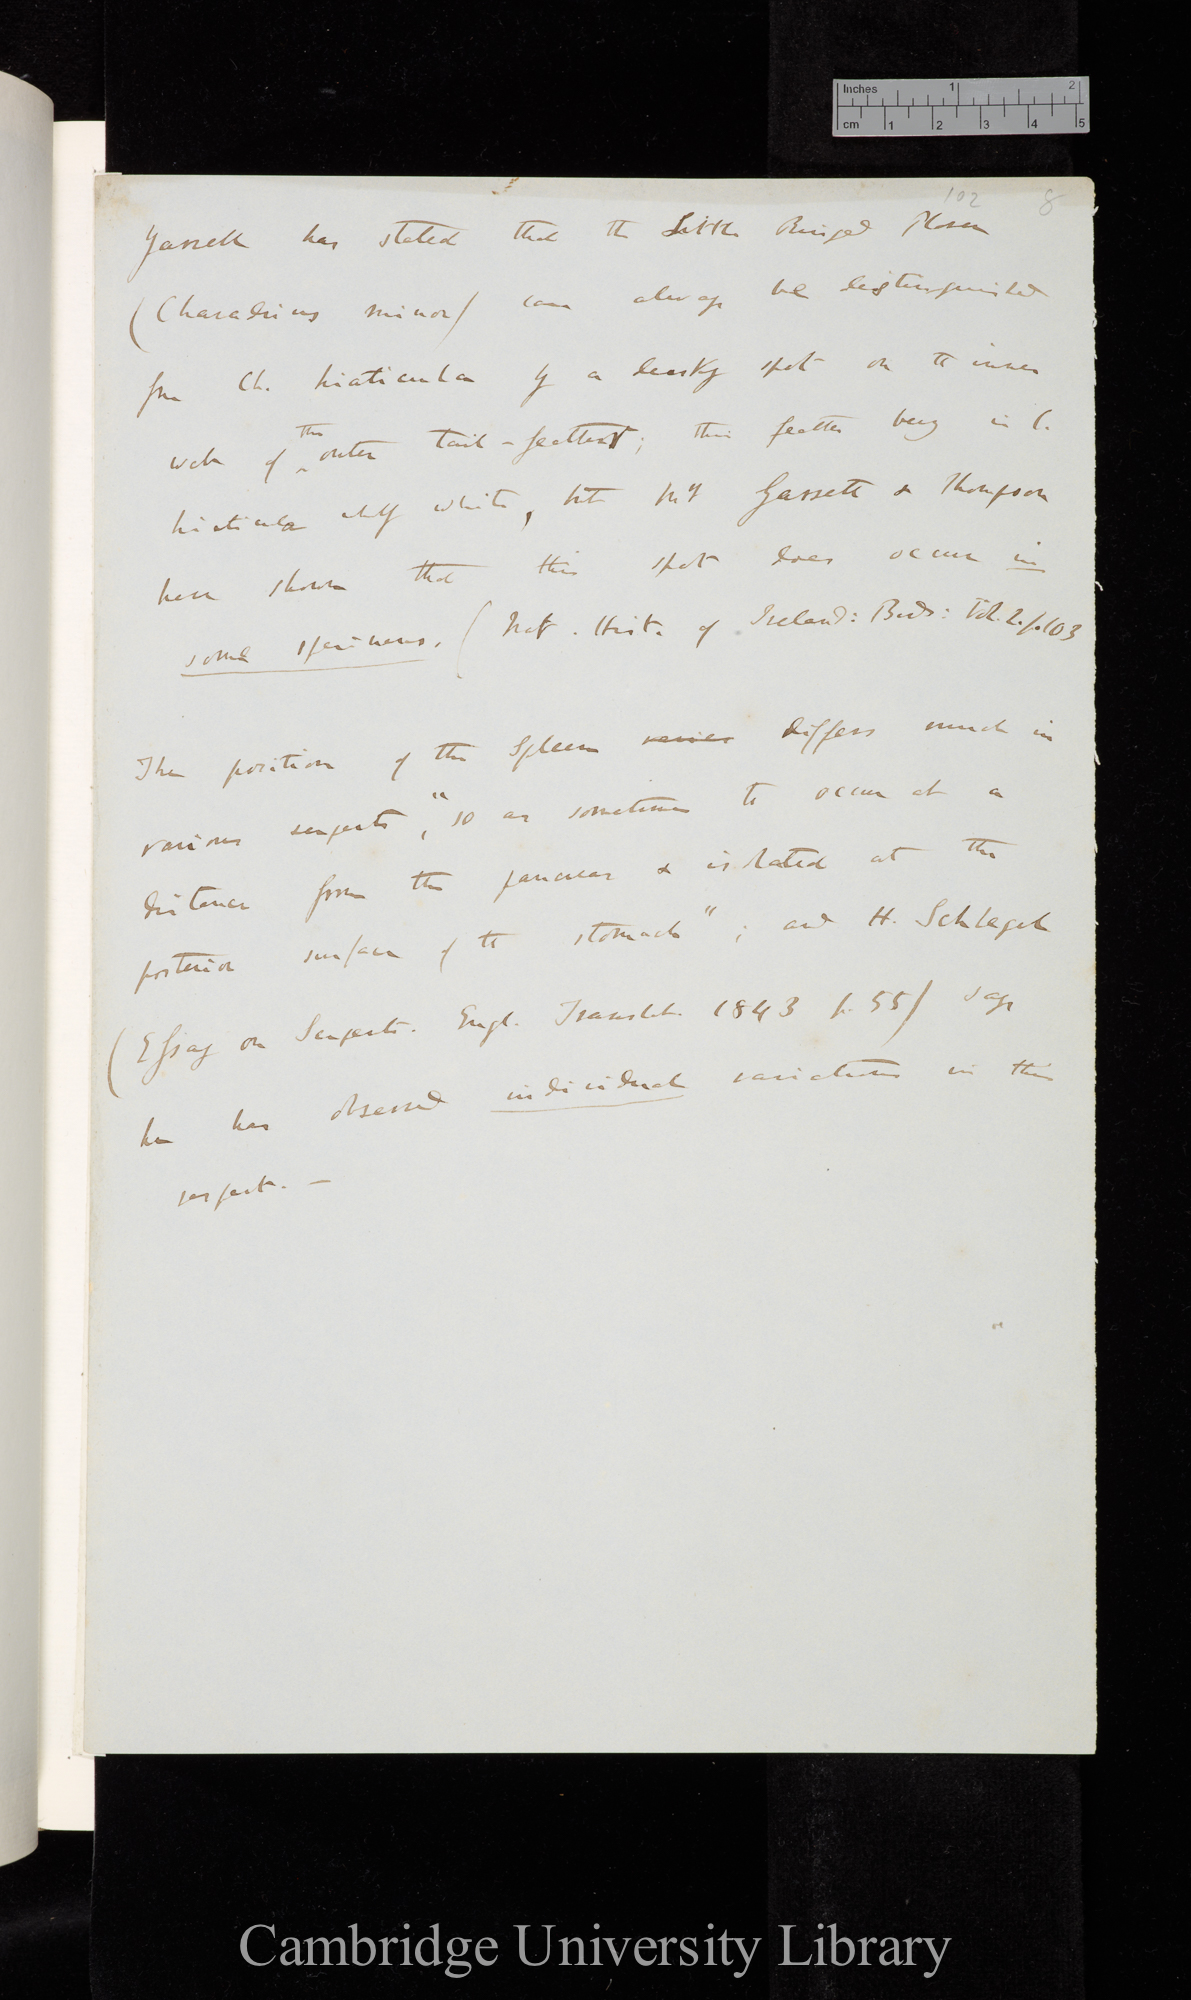 Inches 1 2
cm 1 2 3 4 5
102 8
Yarrell has stated that the Little Ringed Plover
(Charadrius minor) can always be distinguished
from Ch. hiaticula by a dusky spot on the inner
web of the outer tail-feather; this feather being in C.
hiaticula wholly white, but Mess Garrett & Thompson
have shown that this spot does occur in
some specimens. (Nat. Hist. of Ireland: Birds: Vol. 2. p. 103
The position of the spleen varies differs much in
various serpents, "so as sometimes to occur at a
distance from the pancreas & isolated at the
posterior surface of the stomach"; and H. Schlegel
(Essay on Serpents. Engl. Translat. 1843 p. 55) says
he has observed individual variations in this
respect. —
Cambridge University Library